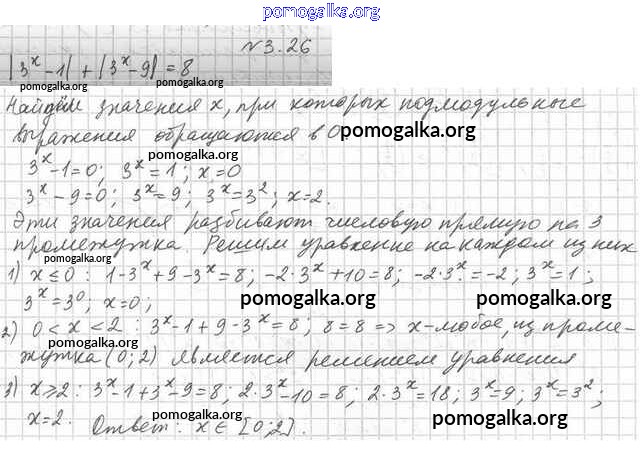 pomogalka.org
№3.26
|3ˣ-1| + |3ˣ-9| = 8
pomogalka.org pomogalka.org
Найдём значения x, при которых подмодульные
выражения обращаются в 0. pomogalka.org
3ˣ-1=0; 3ˣ=1; x=0 pomogalka.org
3ˣ-9=0; 3ˣ=9; 3ˣ=3²; x=2.
pomogalka.org
Эти значения разбивают числовую прямую на 3
промежутка. Решим уравнение на каждом из них
1) x≤0: 1-3ˣ+9-3ˣ=8; -2·3ˣ+10=8; -2·3ˣ=-2; 3ˣ=1;
3ˣ=3⁰; x=0; pomogalka.org pomogalka.org
2) 0<x<2: 3ˣ-1+9-3ˣ=8; 8=8 => x-любое, из проме-
жутка (0;2) является решением уравнения
3) x≥2: 3ˣ-1+3ˣ-9=8; 2·3ˣ-10=8; 2·3ˣ=18; 3ˣ=9; 3ˣ=3²;
x=2. Ответ: x∈[0;2].
pomogalka.org pomogalka.org